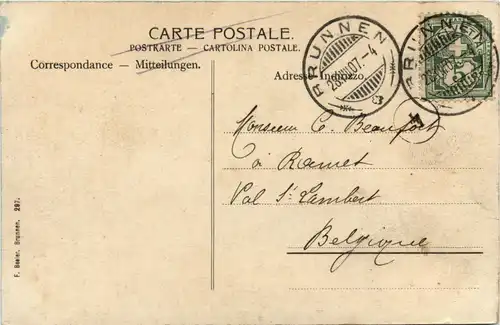 CARTE POSTALE.
POSTKARTE — CARTOLINA POSTALE.
Correspondance — Mitteilungen.
Adresse Indirizzo.
BRUNNEN
BRUNNEN
Monsieur C. Beaufort
à Ramet
Val St Lambert
Belgique
F. Beeler, Brunnen. 297.